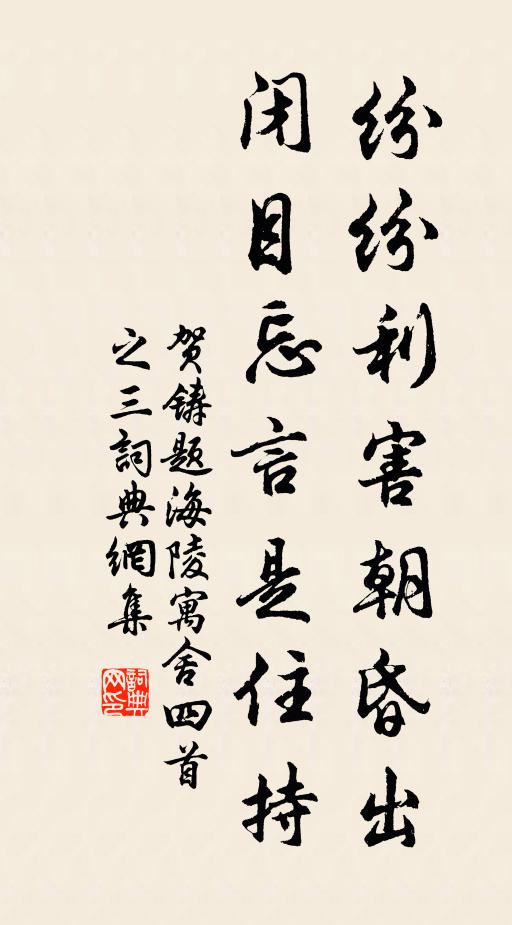 纷纷利害朝昏出
闭目忘言是住持
贺铸题海陵寓舍四首
之三詞典網集
詞典網印